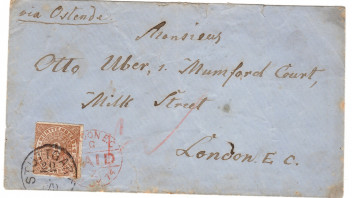 via Ostende
Monsieur
Otto Uber, 1. Mumford Court,
Milk Street
London. E C.
STUTTGA
20
PAID